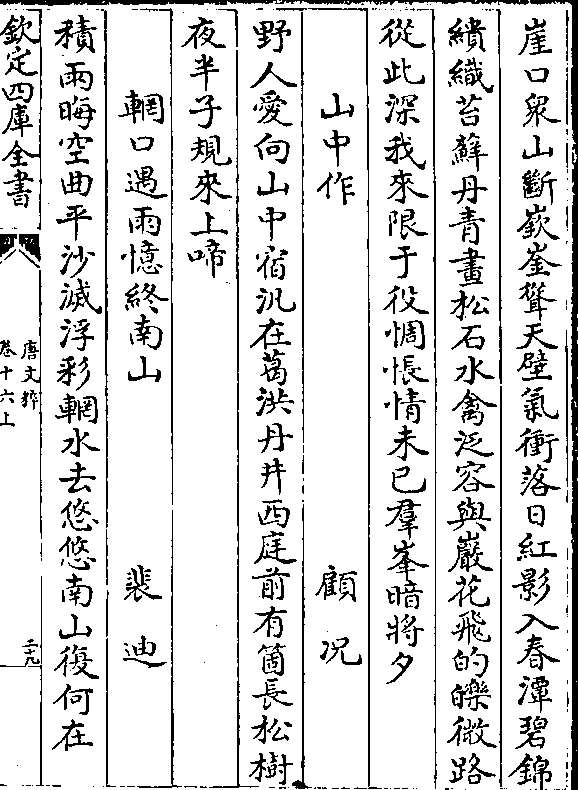 崖口衆山斷嶔崟聳天壁氣衝落日紅影入春潭碧錦
繢織苔蘚丹青畫松石水禽泛容與巖花飛的皪微路
從此深我來限于役惆悵情未已羣峯暗將夕
山中作 顧况
野人愛向山中宿汎在葛洪丹井西庭前有箇長松樹
夜半子規來上啼
輞口遇雨憶終南山 裴迪
積雨晦空曲平沙滅浮彩輞水去悠悠南山復何在
欽定四庫全書
唐文粹
卷十六上
二十九